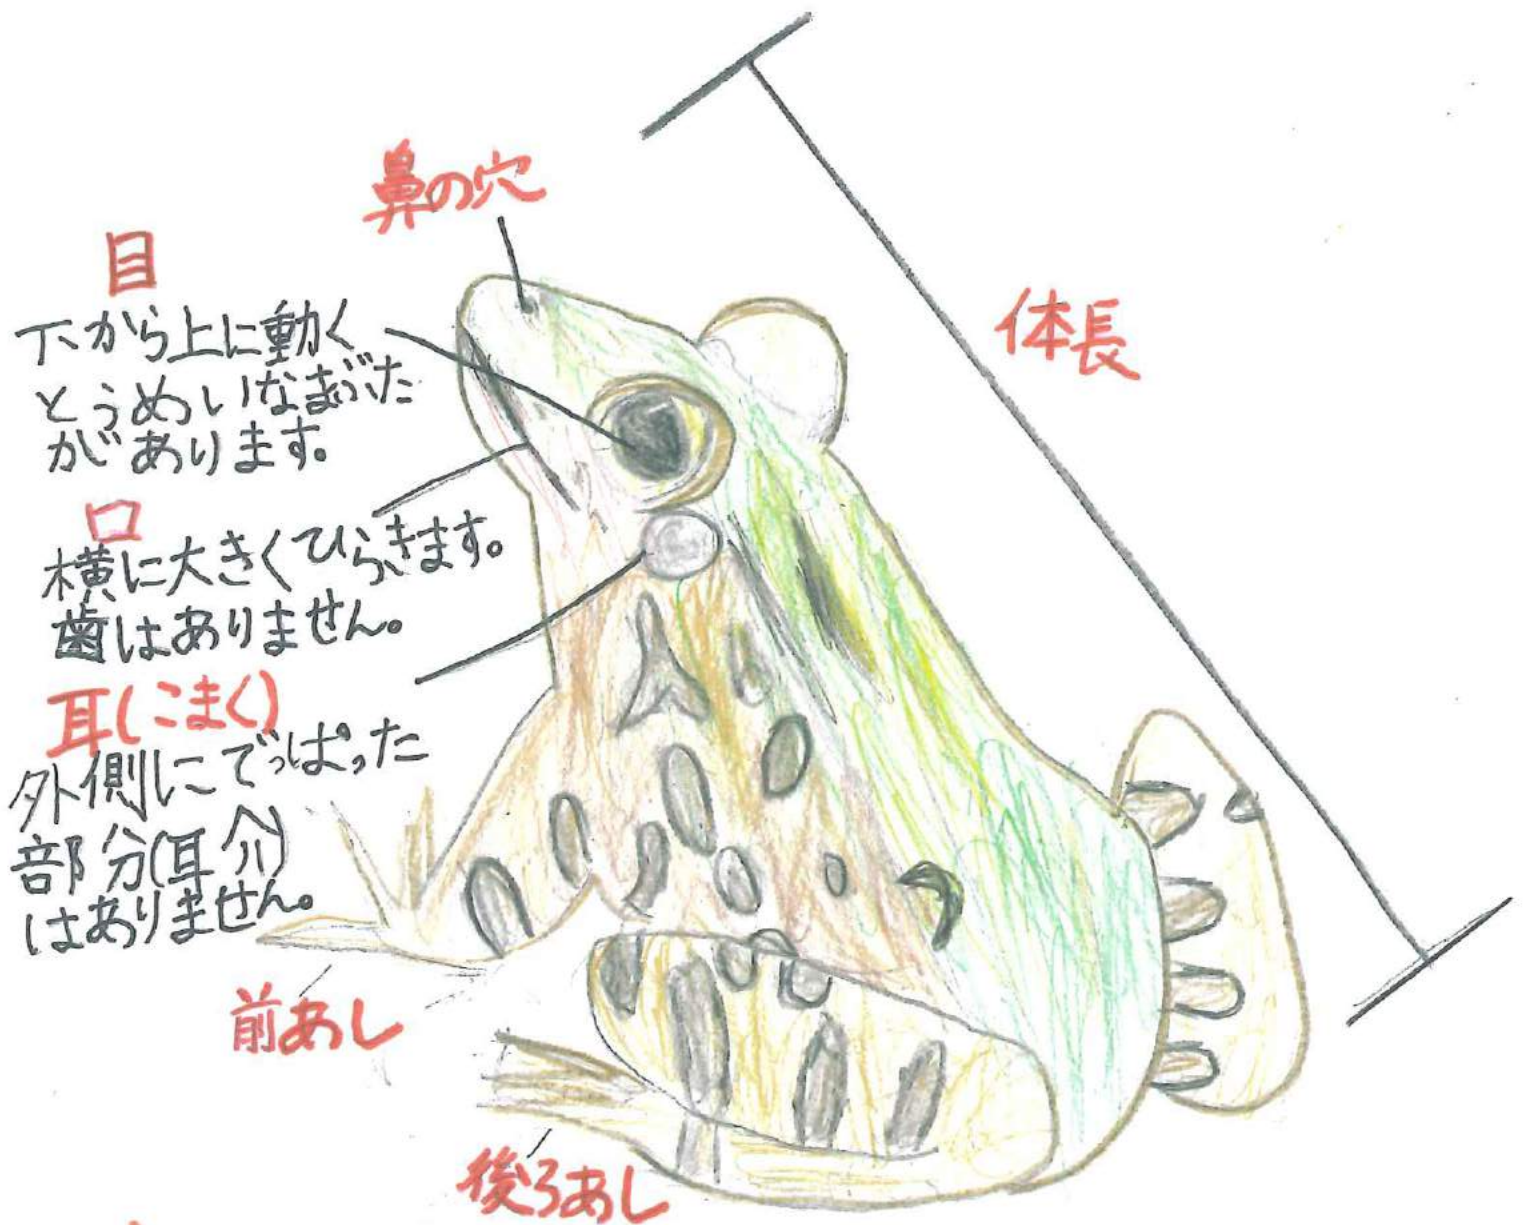 鼻の穴
目
下から上に動く
とうめいなまぶた
があります。
体長
口
横に大きくひらきます。
歯はありません。
耳(こまく)
外側にでっぱった
部分(耳介)
はありません。
前あし
後ろあし